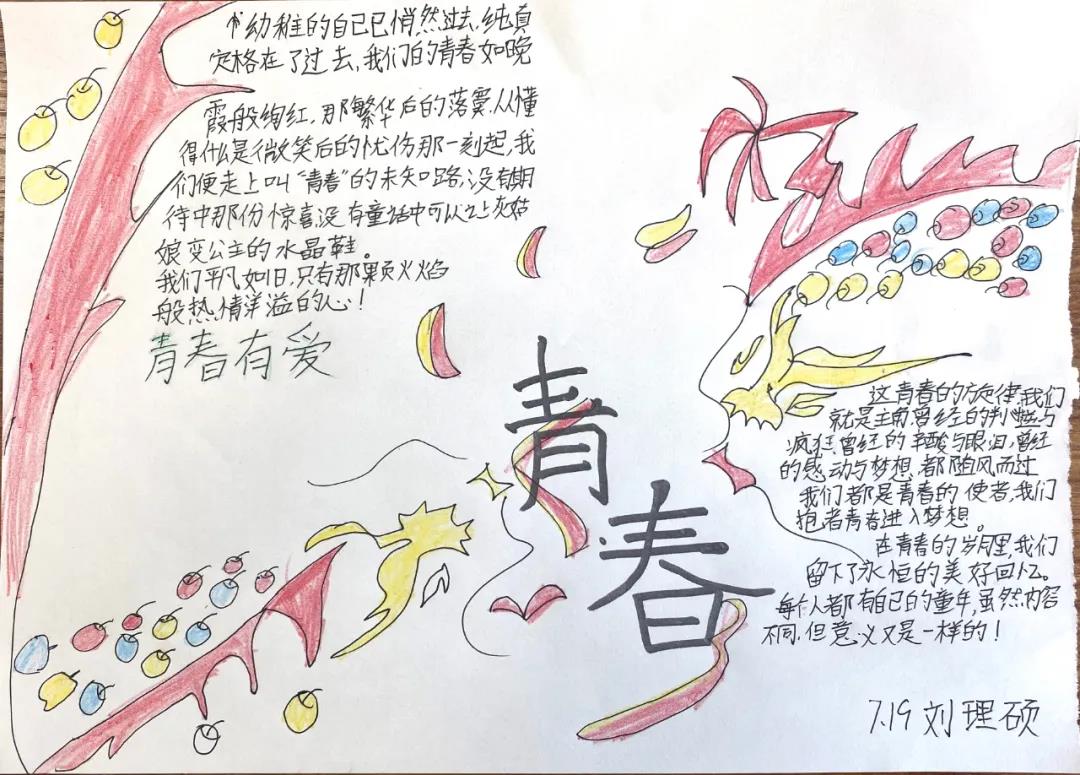 幼稚的自己已悄然过去,纯真
定格在了过去,我们的青春如晚
霞般绚红,那繁华后的落寞,从懂
得什么是微笑后的忧伤那一刻起,我
们便走上叫“青春”的未知路,没有期
待中那份惊喜,没有童话中可以让灰姑
娘变公主的水晶鞋。
我们平凡如旧,只有那颗火焰
般热情洋溢的心!
青春有爱
青春
这青春的旋律,我们
就是主角曾经的叛逆与
疯狂,曾经的辛酸与眼泪,曾经
的感动与梦想,都随风而过
我们都是青春的使者,我们
抱着青春进入梦想。
在青春的岁月里,我们
留下了永恒的美好回忆。
每个人都有自己的童年,虽然内容
不同,但意义又是一样的!
7.19 刘理硕